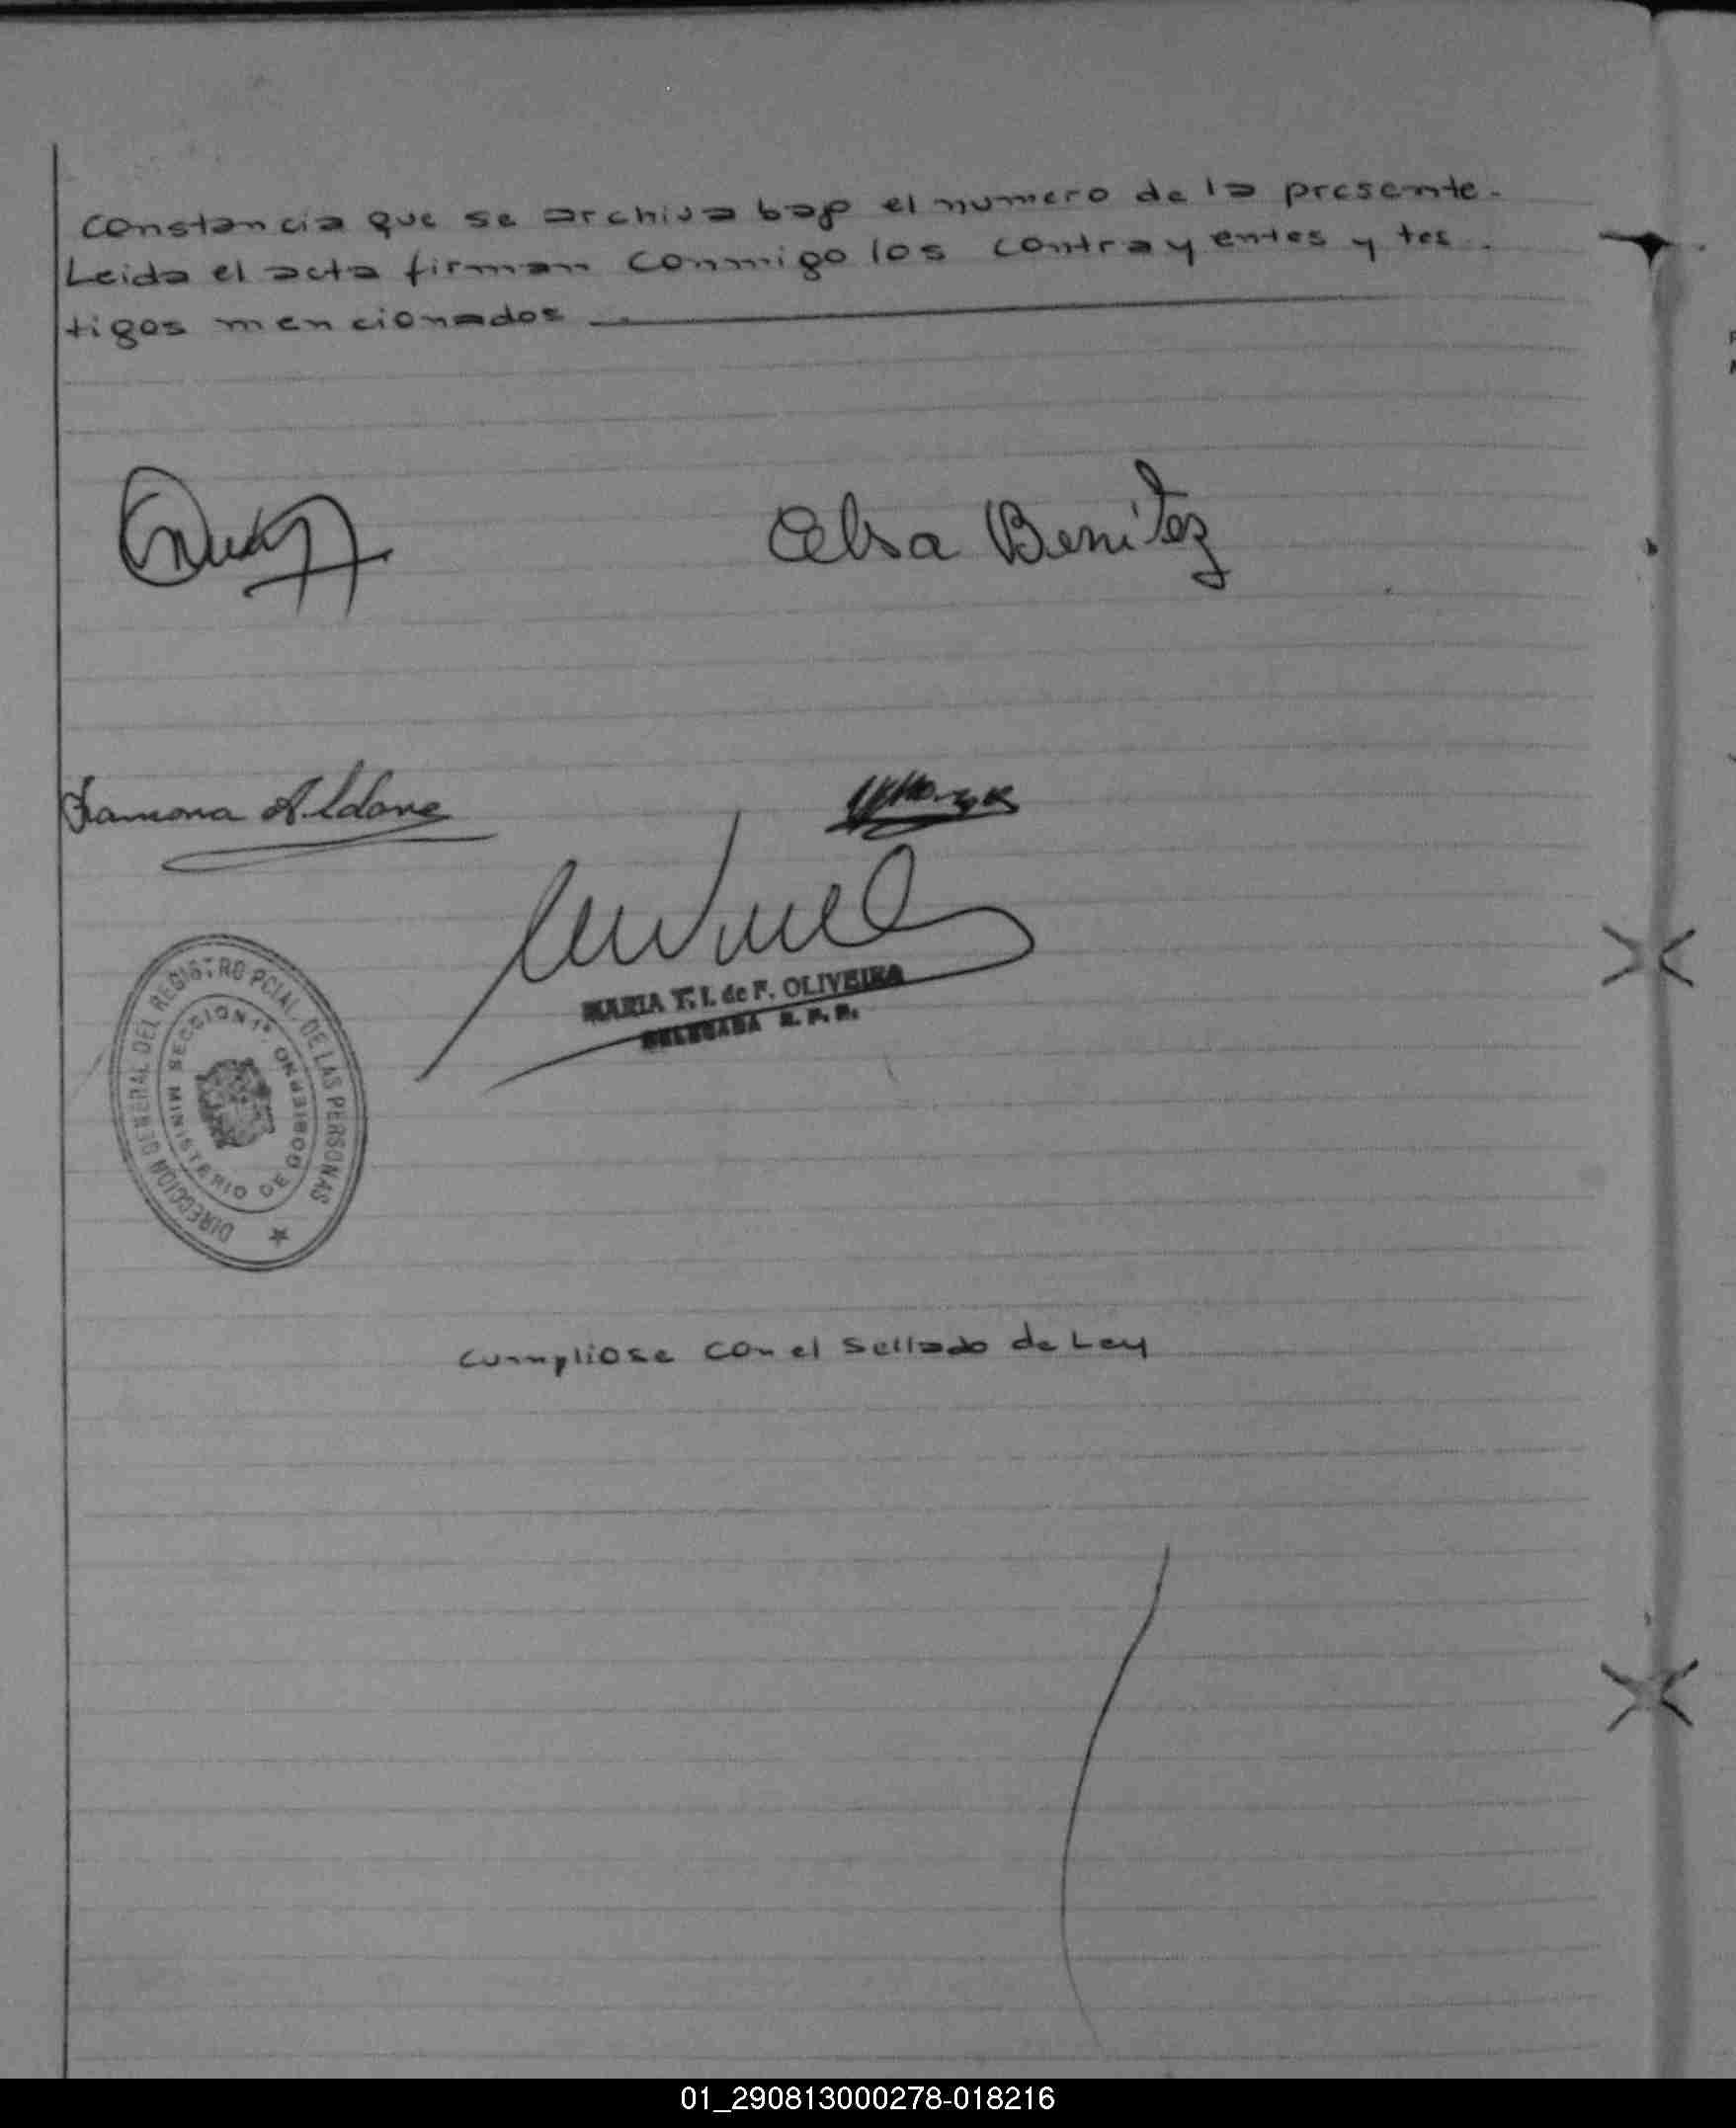 constancia que se archiva bajo el numero de la presente.
Leida el acta firman conmigo los contrayentes y tes
tigos mencionados
Elsa Benitez
Ramona Aldana
MARIA T. I. de F. OLIVEIRA
DELEGADA R. P. P.
DIRECCION GENERAL DEL REGISTRO PCIAL. DE LAS PERSONAS
SECCION 1ª.
MINISTERIO DE GOBIERNO
cumpliose con el sellado de Ley
01_290813000278-018216